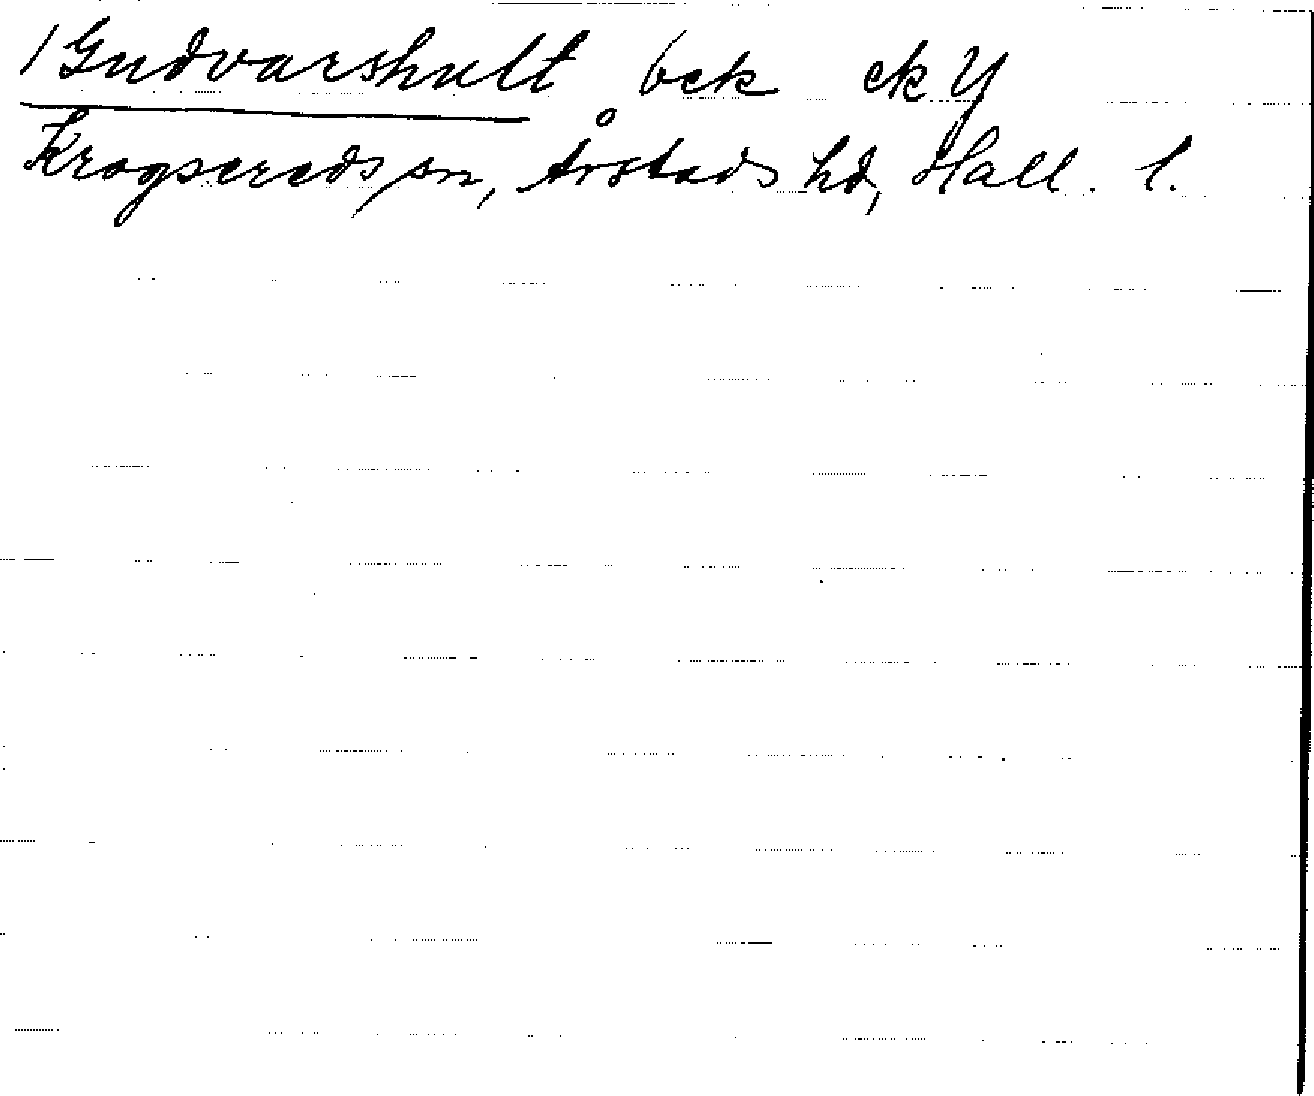 /Gudvarshult bek ek Y
Krogsereds sn, Årstads hd, Hall. l.